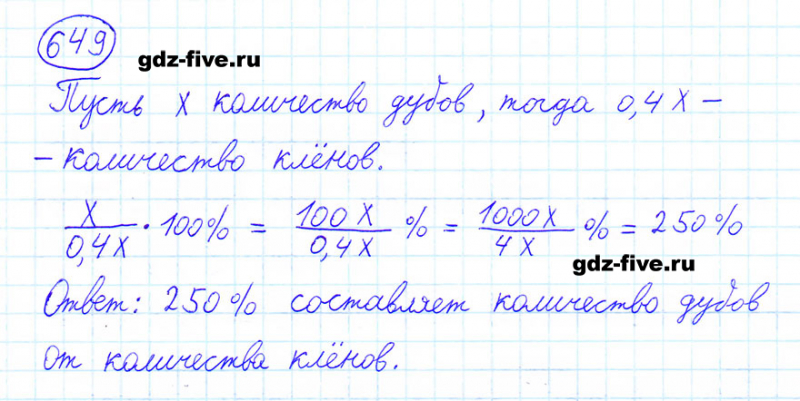 649
gdz-five.ru
Пусть х количество дубов, тогда 0,4х –
– количество клёнов.
х/0,4х · 100% = 100х/0,4х % = 1000х/4х % = 250%
gdz-five.ru
Ответ: 250% составляет количество дубов
от количества клёнов.